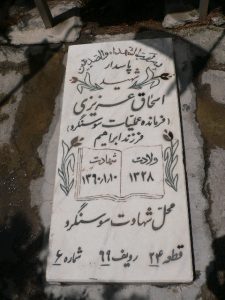 بسم رب الشهداء والصدیقین
پاسدار
شهید
اسحاق عزیزی
(فرمانده عملیات سوسنگرد)
فرزند ابراهیم
ولادت
۱۳۲۸
شهادت
۱۳۶۰،۱،۱۰
محل شهادت سوسنگرد
قطعه ۲۴ ردیف ۹۹ شماره ۶